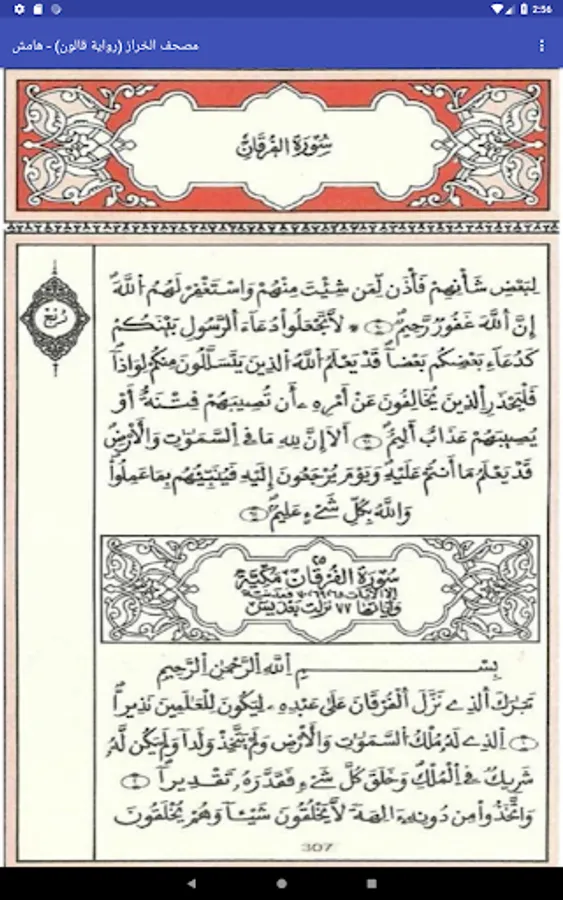 2:56
مصحف الخراز (رواية قالون) - هامش
سُورَةُ الفُرْقَانِ
رُبُع
لِبَعْضِ شَأْنِهِمْ فَأْذَن لِّمَن شِئْتَ مِنْهُمْ وَاسْتَغْفِرْ لَهُمُ اُللَّهَ
إِنَّ اَللَّهَ غَفُورٌ رَّحِيمٌ * لَّا تَجْعَلُواْ دُعَآءَ اَلرَّسُولِ بَيْنَكُمْ
كَدُعَآءِ بَعْضِكُم بَعْضاً قَدْ يَعْلَمُ اُللَّهُ اُلذِينَ يَتَسَلَّلُونَ مِنكُمْ لِوَاذاً
فَلْيَحْذَرِ اِلذِينَ يُخَالِفُونَ عَنْ أَمْرِهِ أَن تُصِيبَهُمْ فِتْنَةٌ أَوْ
يُصِيبَهُمْ عَذَابٌ أَلِيمٌ أَلَا إِنَّ لِلهِ مَا فِي اِلسَّمَٰوَٰتِ وَالْأَرْضِ
قَدْ يَعْلَمُ مَا أَنتُمْ عَلَيْهِ وَيَوْمَ يُرْجَعُونَ إِلَيْهِ فَيُنَبِّئُهُم بِمَا عَمِلُواْ
وَاللَّهُ بِكُلِّ شَيْءٍ عَلِيمٌ
٢٥
سُورَةُ الفُرْقَانِ مَكِّيَّة
إلا الآيات ٦٨ و٦٩ و٧٠ فمدنية
وآياتها ٧٧ نزلت بعد يس
بِسْمِ اِللَّهِ اِلرَّحْمَٰنِ اِلرَّحِيمِ
تَبَٰرَكَ اَلذِي نَزَّلَ اَلْفُرْقَانَ عَلَىٰ عَبْدِهِ لِيَكُونَ لِلْعَٰلَمِينَ نَذِيراً
اِلذِي لَهُ مُلْكُ اُلسَّمَٰوَٰتِ وَالْأَرْضِ وَلَمْ يَتَّخِذْ وَلَداً وَلَمْ يَكُن لَّهُ
شَرِيكٌ فِي اِلْمُلْكِ وَخَلَقَ كُلَّ شَيْءٍ فَقَدَّرَهُ تَقْدِيراً
وَاتَّخَذُواْ مِن دُونِهِ ءَالِهَةً لَّا يَخْلُقُونَ شَيْئاً وَهُمْ يُخْلَقُونَ
307